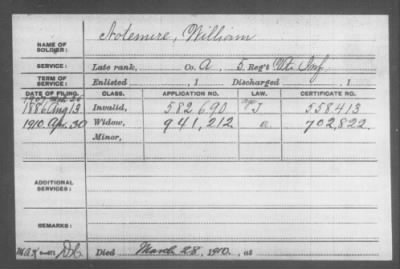 Notemire, William
NAME OF SOLDIER:
SERVICE: Late rank, Co. A, 5 Reg't Inf.
TERM OF SERVICE: Enlisted , 1 Discharged , 1
DATE OF FILING. CLASS. APPLICATION NO. LAW. CERTIFICATE NO.
1886 Aug 13 Invalid, 582,690 J 558413
1910. Apr. 30 Widow, 941,212 702,822.
Minor,
ADDITIONAL SERVICES:
REMARKS:
Died March 28, 1910, at